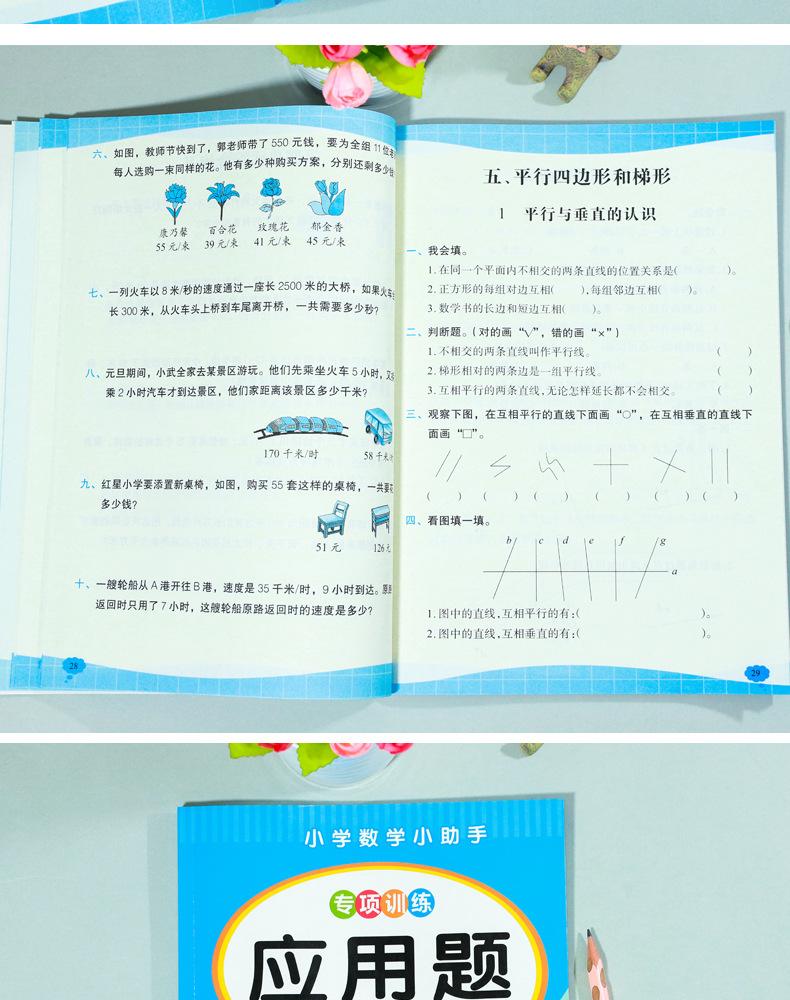 六、如图，教师节快到了，郭老师带了 550 元钱，要为全组 11 位老
每人选购一束同样的花。他有多少种购买方案，分别还剩多少钱
康乃馨 百合花 玫瑰花 郁金香
55 元/束 39 元/束 41 元/束 45 元/束
七、一列火车以 8 米/秒的速度通过一座长 2500 米的大桥，如果火车
长 300 米，从火车头上桥到车尾离开桥，一共需要多少秒？
八、元旦期间，小武全家去某景区游玩。他们先乘坐火车 5 小时，又
乘 2 小时汽车才到达景区，他们家距离该景区多少千米？
170 千米/时 58 千米
九、红星小学要添置新桌椅，如图，购买 55 套这样的桌椅，一共要花
多少钱？
51 元 126 元
十、一艘轮船从 A 港开往 B 港，速度是 35 千米/时，9 小时到达。原路
返回时只用了 7 小时，这艘轮船原路返回时的速度是多少？
28
五、平行四边形和梯形
1 平行与垂直的认识
一、我会填。
1. 在同一个平面内不相交的两条直线的位置关系是( )。
2. 正方形的每组对边互相( )，每组邻边互相( )。
3. 数学书的长边和短边互相( )。
二、判断题。(对的画“√”，错的画“×”)
1. 不相交的两条直线叫作平行线。 ( )
2. 梯形相对的两条边是一组平行线。 ( )
3. 互相平行的两条直线，无论怎样延长都不会相交。 ( )
三、观察下图，在互相平行的直线下面画“○”，在互相垂直的直线下
面画“□”。
( ) ( ) ( ) ( ) ( ) ( )
四、看图填一填。
b c d e f g
a
1. 图中的直线，互相平行的有：( )。
2. 图中的直线，互相垂直的有：( )。
29
小学数学小助手
专项训练
应用题